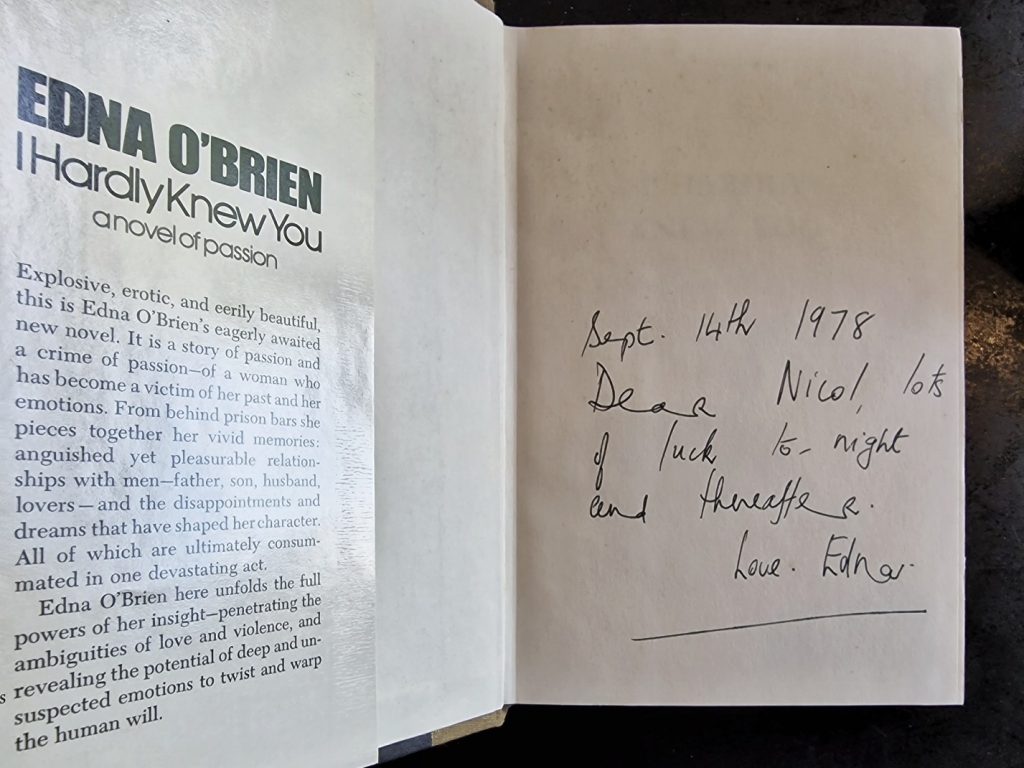 EDNA O'BRIEN
I Hardly Knew You
a novel of passion
Explosive, erotic, and eerily beautiful,
this is Edna O'Brien's eagerly awaited
new novel. It is a story of passion and
a crime of passion—of a woman who
has become a victim of her past and her
emotions. From behind prison bars she
pieces together her vivid memories:
anguished yet pleasurable relation-
ships with men—father, son, husband,
lovers—and the disappointments and
dreams that have shaped her character.
All of which are ultimately consum-
mated in one devastating act.
Edna O'Brien here unfolds the full
powers of her insight—penetrating the
ambiguities of love and violence, and
s revealing the potential of deep and un-
suspected emotions to twist and warp
the human will.
Sept. 14th 1978
Dear Nicol, lots
of luck to-night
and thereafter.
Love. Edna.